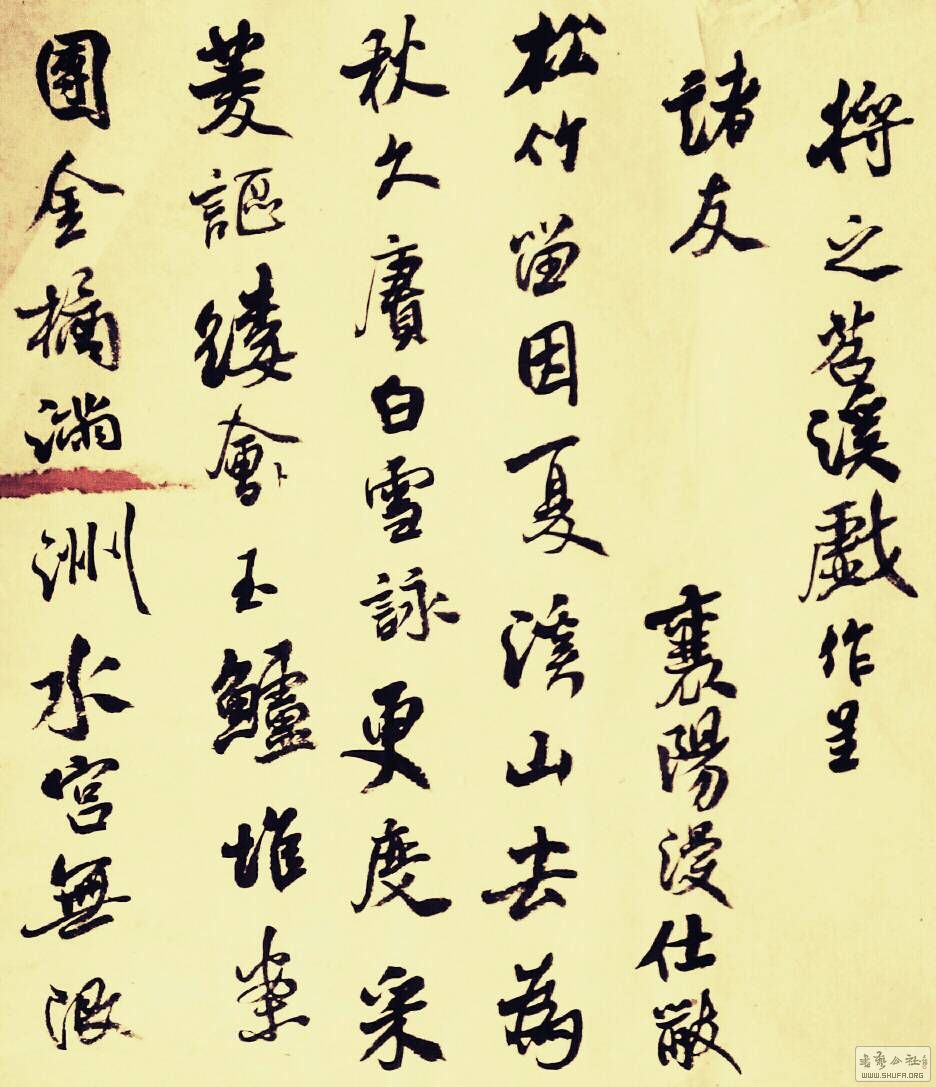 將之苕溪戲作呈
諸友 襄陽漫仕黻
松竹留因夏溪山去為
秋久賡白雪詠更度采
菱謳縷會玉鱸堆案
團金橘滿洲水宮無限
書藝公社
WWW.SHUFA.ORG